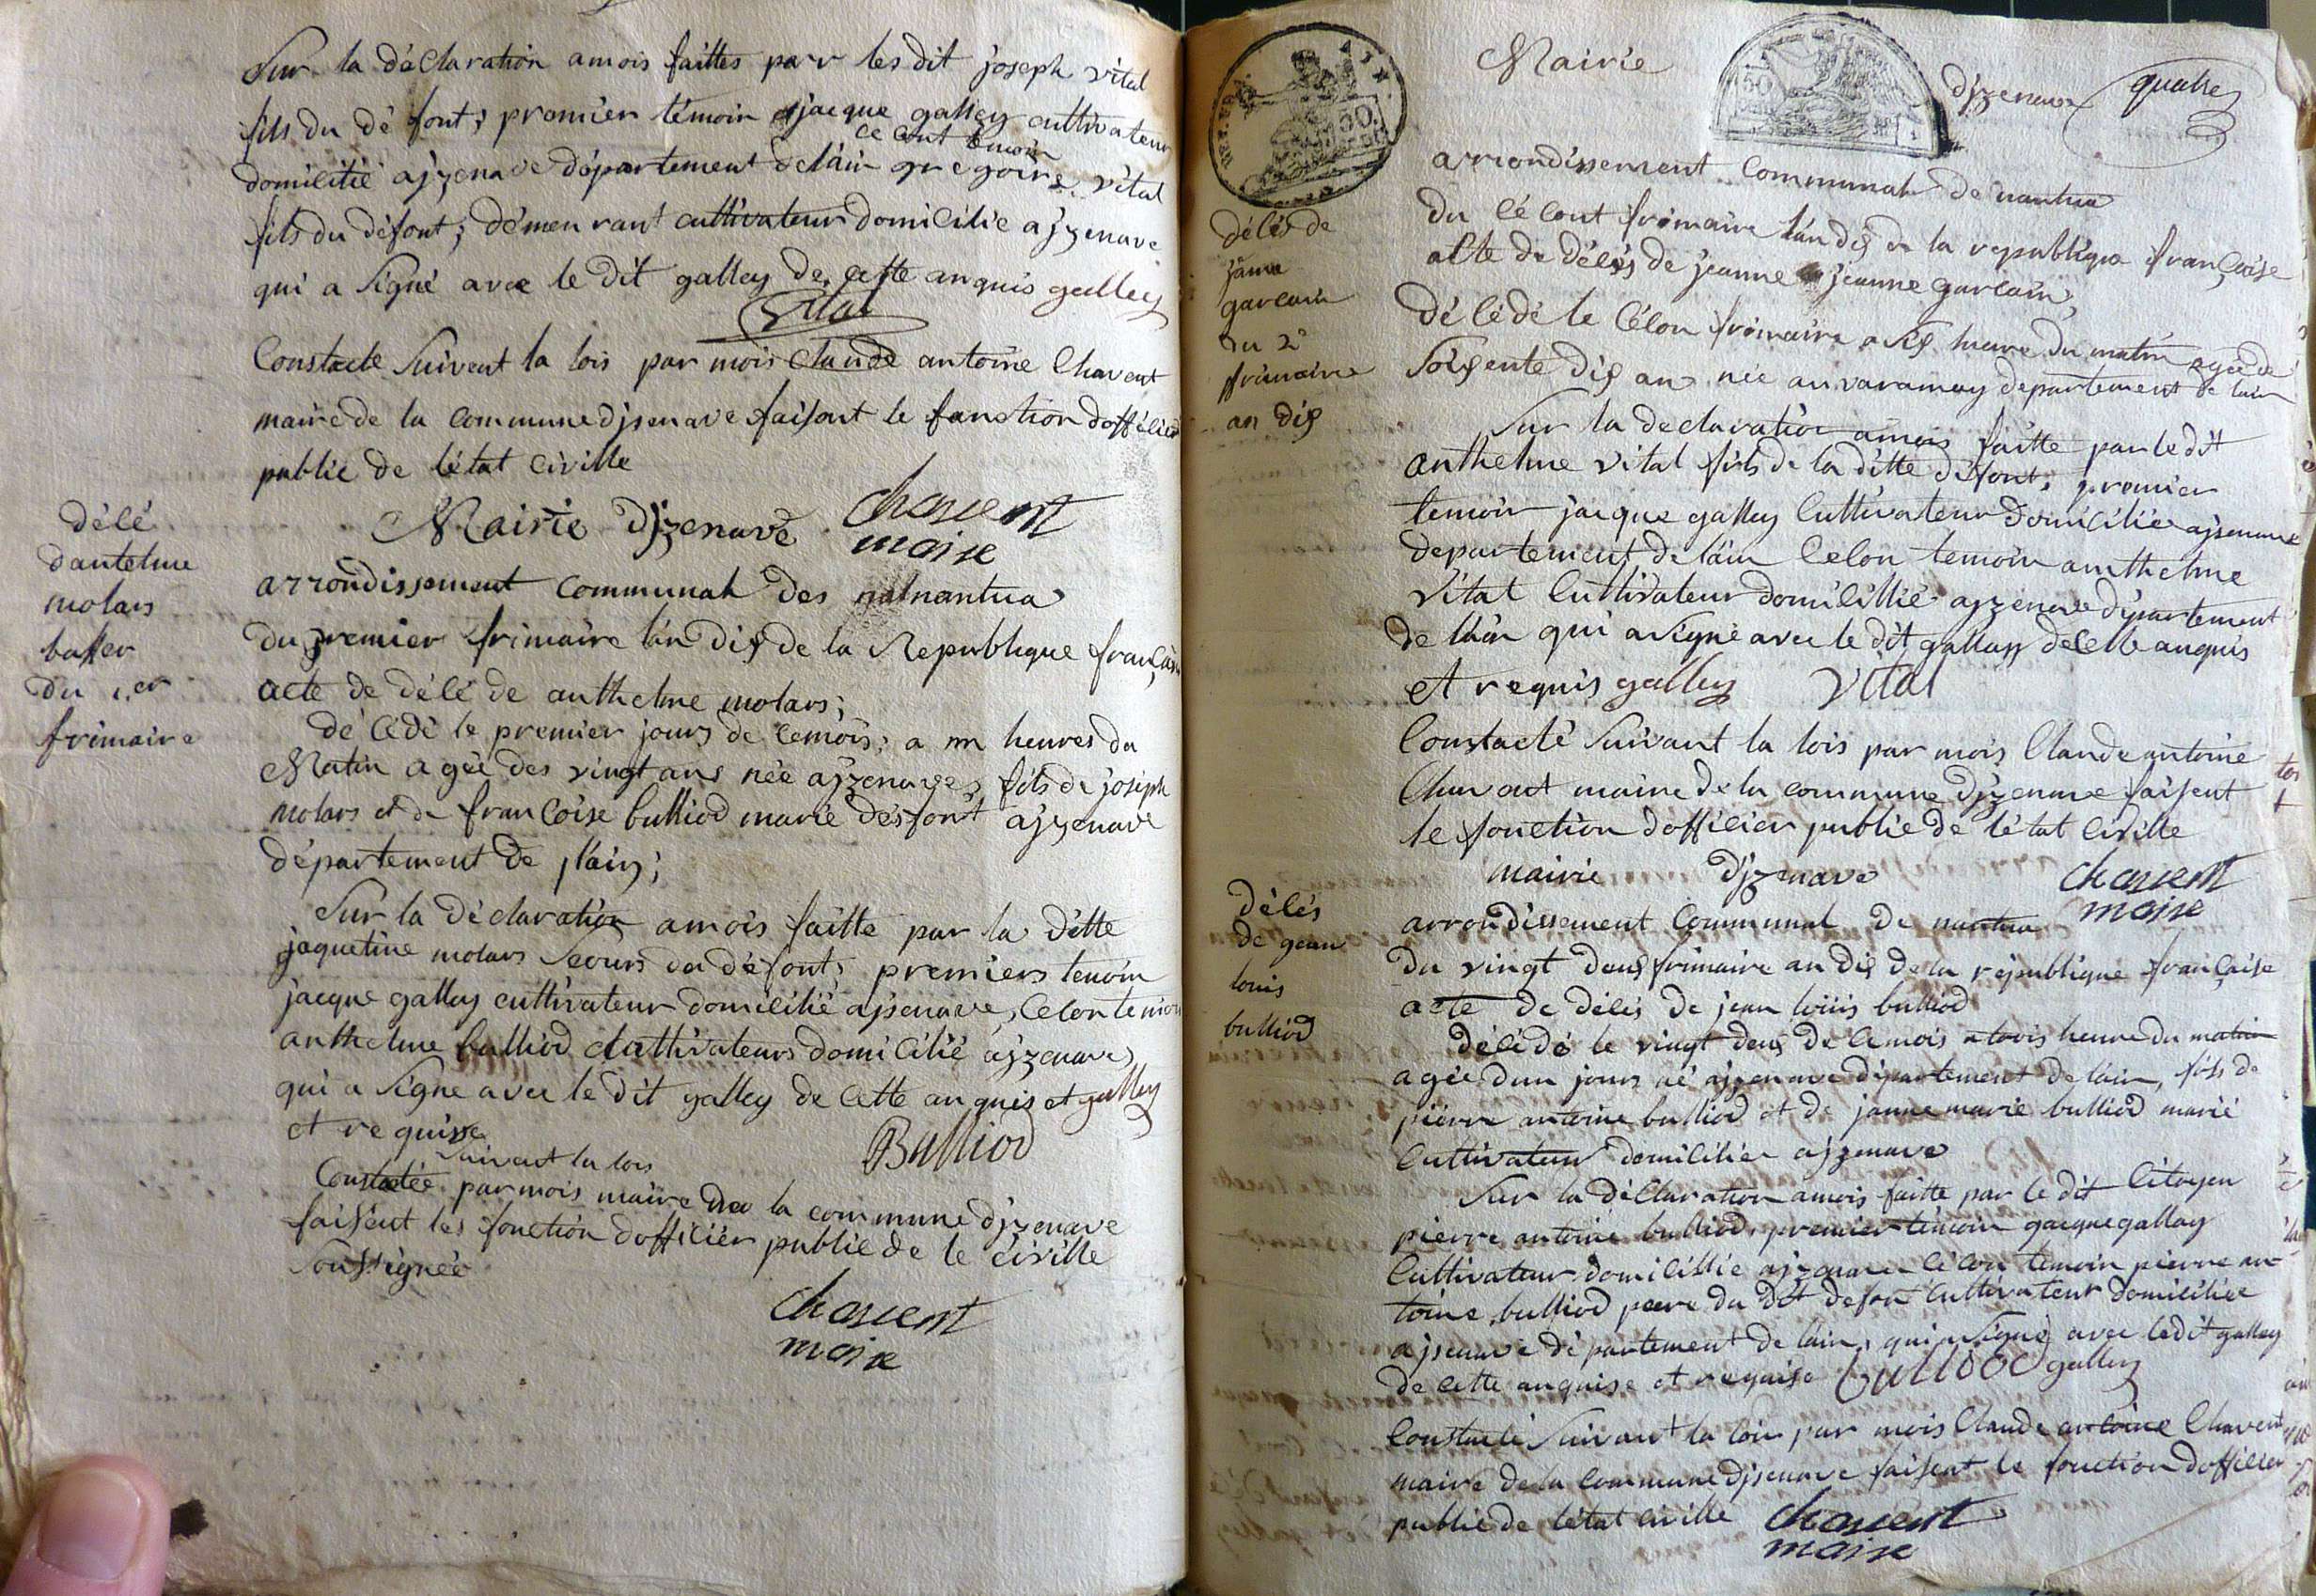 Sur la déclaration amois faittes parr les dit joseph vital
fils du dé font; promier témoin jacque galley cultivateur
ce cont temoin
domicitié ajzenave département de láin gregoire vital
fils du défont; démeurant cultivateur domicilié ajzenave
qui a signé avec le dit galley de cette anquis galley
Vital
Constacte suivent la lois par mois claude antoine Chavent
maire de la commune djsenave faisont le fonction dofficier
public de létat civille
Chavent
maire
délé
dantelme
molars
du 1.er
frimaire
Mairie djzenave
arrondissement communah des nantua
du premier frimaire lán dix de la Republique française
acte de délé de anthelme molars;
décédé le premier jours de cemois; a un heures du
Matin agée des vingt ans née ajzenave, fils de joseph
molars et de francoise bulliod marie desfont ajzenave
département de láin;
Sur la déclaration amois faitte par la ditte
jaquetine molars seours du défont; premiers temoin
jacque galley cultivateur domicilié ajsenave, celon temoin
anthelme bulliod cultivateurs domicilié ajzenave
qui a signe avec le dit galley de cette anquis et galley
et requise
Bulliod
suivant la lois
Constatée par mois maire de la commune djzenave
faisent les fonction dofficiér public de le civille
soussignée
Chavent
maire
Mairie djzenave quatre
arrondissement communah de nantua
délés de
jeanne
garcain
du 2e
frimaire
an dix
du cécont frimaire lán dix de la republique française
acte de délés de jeanne jeanne garcain
décédé le célon frimaire a six heure du matin agée de
soixente dix ans née au varamey departement de lain
Sur la declaration amois faitte par le dit
anthelme vital fils de la ditte défont; promier
temoin jacque galley cultivateur domicilié ajsenave
departement de láin celon temoin anthelme
vital cultivateur domicillié ajzenave département
de láin qui a signé avec le dit galley de cette anquis
et requis galley Vital
Constacté suivant la lois par mois Claude antoine
Chavent maire de la commune djzenave faisent
le fonction dofficier public de létat civille
Chavent
maire
mairie djzenave
délés
de jean
louis
bulliod
arrondissement communal de nantua
du vingt deux frimaire an dix de la république française
acte de délés de jean loüis bulliod
décédé le vingt deux de cemois a trois heure du matin
agée dun jours né ajzenave département de láin, fils de
pierre antoine bulliod et de jannemarie bulliod marié
cultivateur domicilier ajzenave
Sur la déclaration amois faitte par le dit Citoyen
pierre antoine bulliod, premier témoin gacque galley
Cultivateur domicillié ajzenave célon temoin pierre an-
toine bulliod peere du dit defon cultivateur domiciliée
ajsenave département de láin, qui a signé avec ledit galley
de cette anquise et requise bulliod galley
Constacté suivant la lois par mois Claude antoine Chavent
maire de la commune djsenave faisent le fonction dofficier
public de létat civille
Chavent
maire